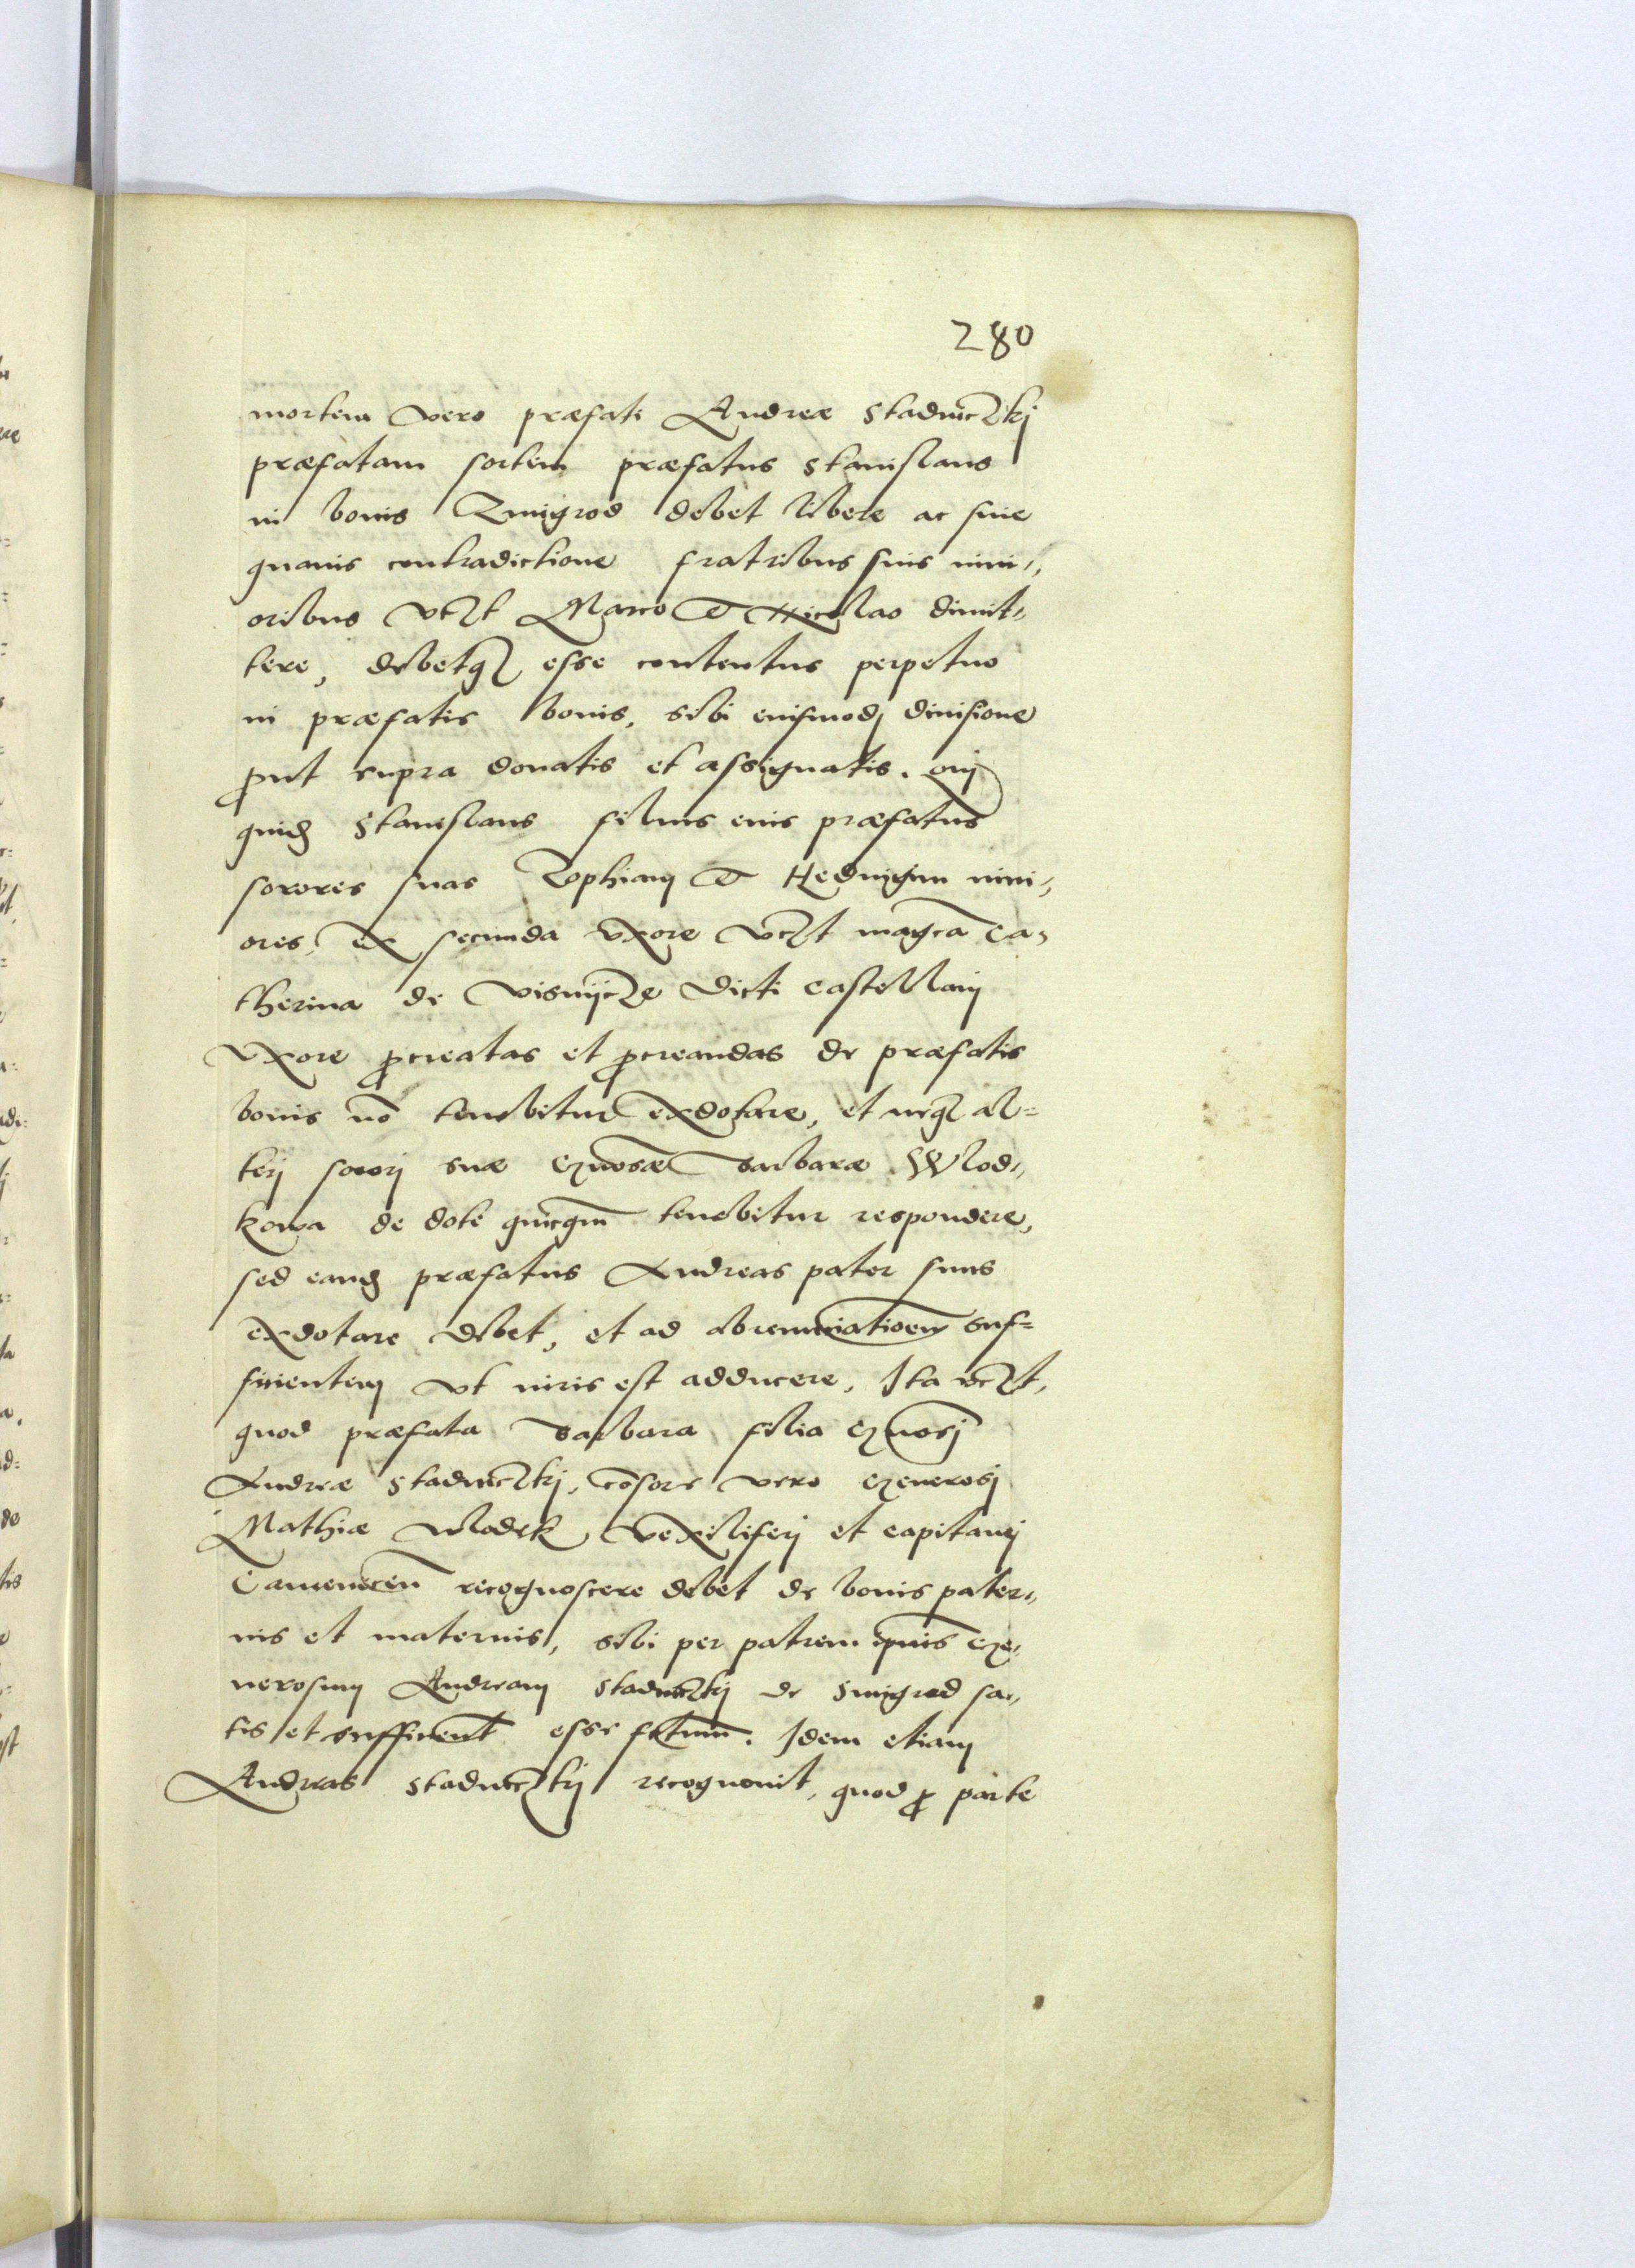 280
mortem vero præfati Andreæ Stadniczkj
præfatam sortem præfatus Stanislaus
in bonis Zmigrod debet libere ac sine
quauis contradictione fratribus suis mini-,
oribus vczt Marco et Nicolao dimit-,
tere, debetqз esse contentus perpetuo
in præfatis bonis, sibi euismodj diuisione
ꝓut supra donatis et assignatis.
quidз Stanislaus filius eius præfatus
sorores suas Zophiam et Hedwigim mini-,
ores, ex secunda vxore vczt magcā Ca-,
therina de Visnijcze dicti Castellanj
vxore ꝓcreatas et ꝓcreandas de præfatis
bonis nō tenebitur exdotare, et neqз al=
terj sororj suæ Gnosæ Barbaræ Wlod-,
kowa de dote quicqm̄ tenebitur respondere,
sed eandз præfatus Andreas pater suus
exdotare debet, et ad abrenunciatioem̄ suf=
ficientem vt iuris est adducere, Ita vczt,
quod præfata Barbara filia Gnosj
Andreæ Stadniczkj, cōsors vero Generosj
Mathiæ Wlodek Vexiliferj et Capitanej
Camenecen̄ recognoscere debet de bonis pater-,
nis et maternis, sibi per patrem ipsius Ge-,
nerosum Andream Stadniczkj de Smigrod sa-,
tis et sufficient̄ esse fctum̄. Idem etiam
Andreas Stadniczkj recognouit, quod ꝓ parte